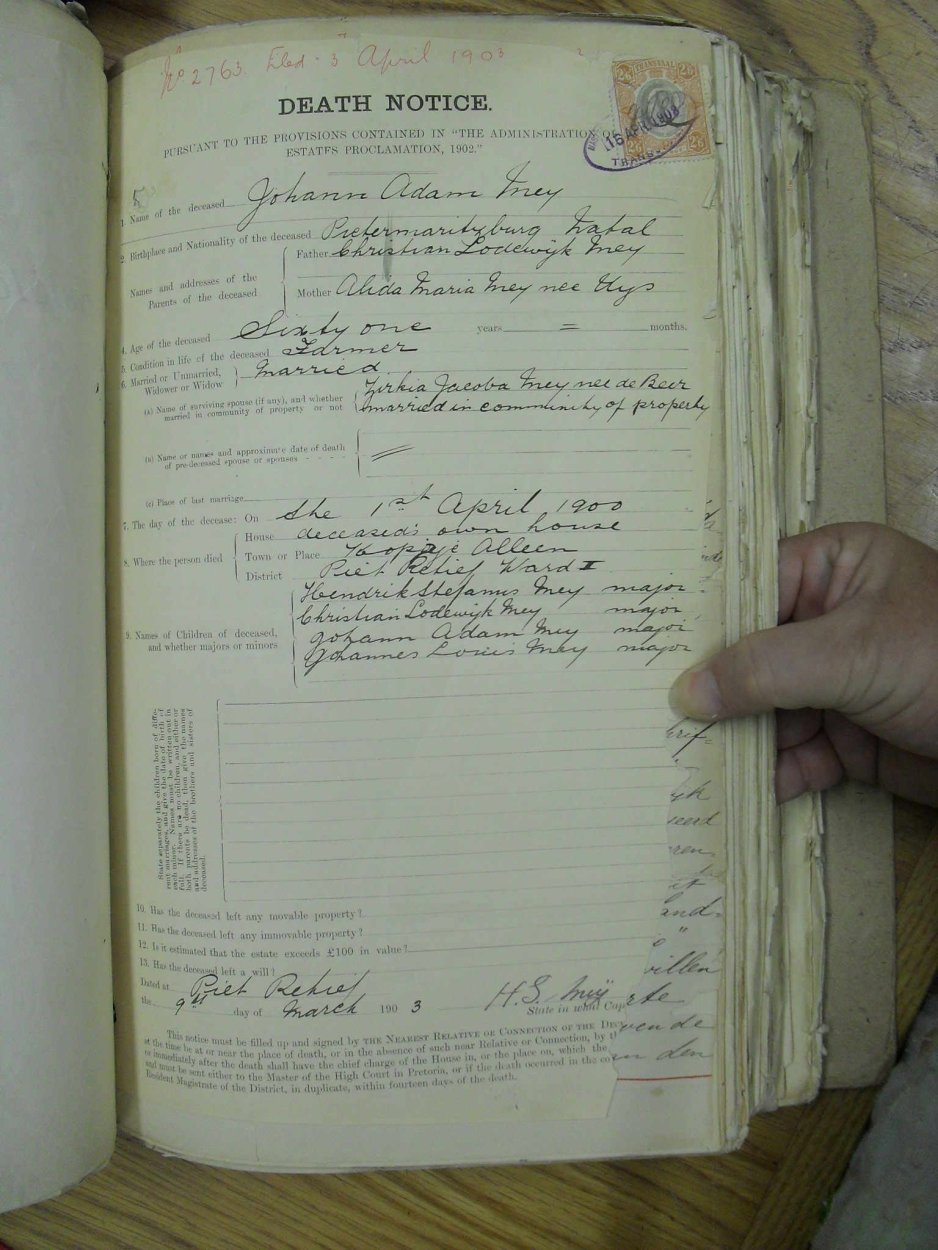 No 2763. Filed 3 April 1903
DEATH NOTICE.
PURSUANT TO THE PROVISIONS CONTAINED IN "THE ADMINISTRATION OF
ESTATES PROCLAMATION, 1902."
TRANSVAAL
2/6 2/6
16 APR 1903
TRANS
1. Name of the deceased Johann Adam Mey
2. Birthplace and Nationality of the deceased Pietermaritzburg Natal
Names and addresses of the Parents of the deceased
Father Christian Lodewijk Mey
Mother Alida Maria Mey nee Uys
4. Age of the deceased Sixty one years = months.
5. Condition in life of the deceased Farmer
6. Married or Unmarried, Widower or Widow Married
(a) Name of surviving spouse (if any), and whether married in community of property or not
Zirkia Jacoba Mey nee de Beer
married in community of property
(b) Name or names and approximate date of death of pre-deceased spouse or spouses - - - - =
(c) Place of last marriage
7. The day of the decease: On the 1st April 1900
8. Where the person died
House deceased's own house
Town or Place Kopje Alleen
District Piet Retief Ward I
9. Names of Children of deceased, and whether majors or minors
Hendrik Stefanus Mey major
Christian Lodewijk Mey major
Johann Adam Mey major
Johannes Louis Mey major
State separately the children born of diffe-
rent marriages, and give the date of birth of
each minor. Names must be written out in
full. If there are no children, and either or
both parents be dead, then give the names
and addresses of the brothers and sisters of
deceased.
10. Has the deceased left any movable property?
11. Has the deceased left any immovable property?
12. Is it estimated that the estate exceeds £100 in value?
13. Has the deceased left a will?
Dated at Piet Retief
the 9th day of March 1903 H.S. Mey
State in what Cap
This notice must be filled up and signed by THE NEAREST RELATIVE OR CONNECTION OF THE DEC
at the time be at or near the place of death, or in the absence of such near Relative or Connection, by th
or immediately after the death shall have the chief charge of the House in, or the place on, which the
and must be sent either to the Master of the High Court in Pretoria, or if the death occurred in the co
Resident Magistrate of the District, in duplicate, within fourteen days of the death.